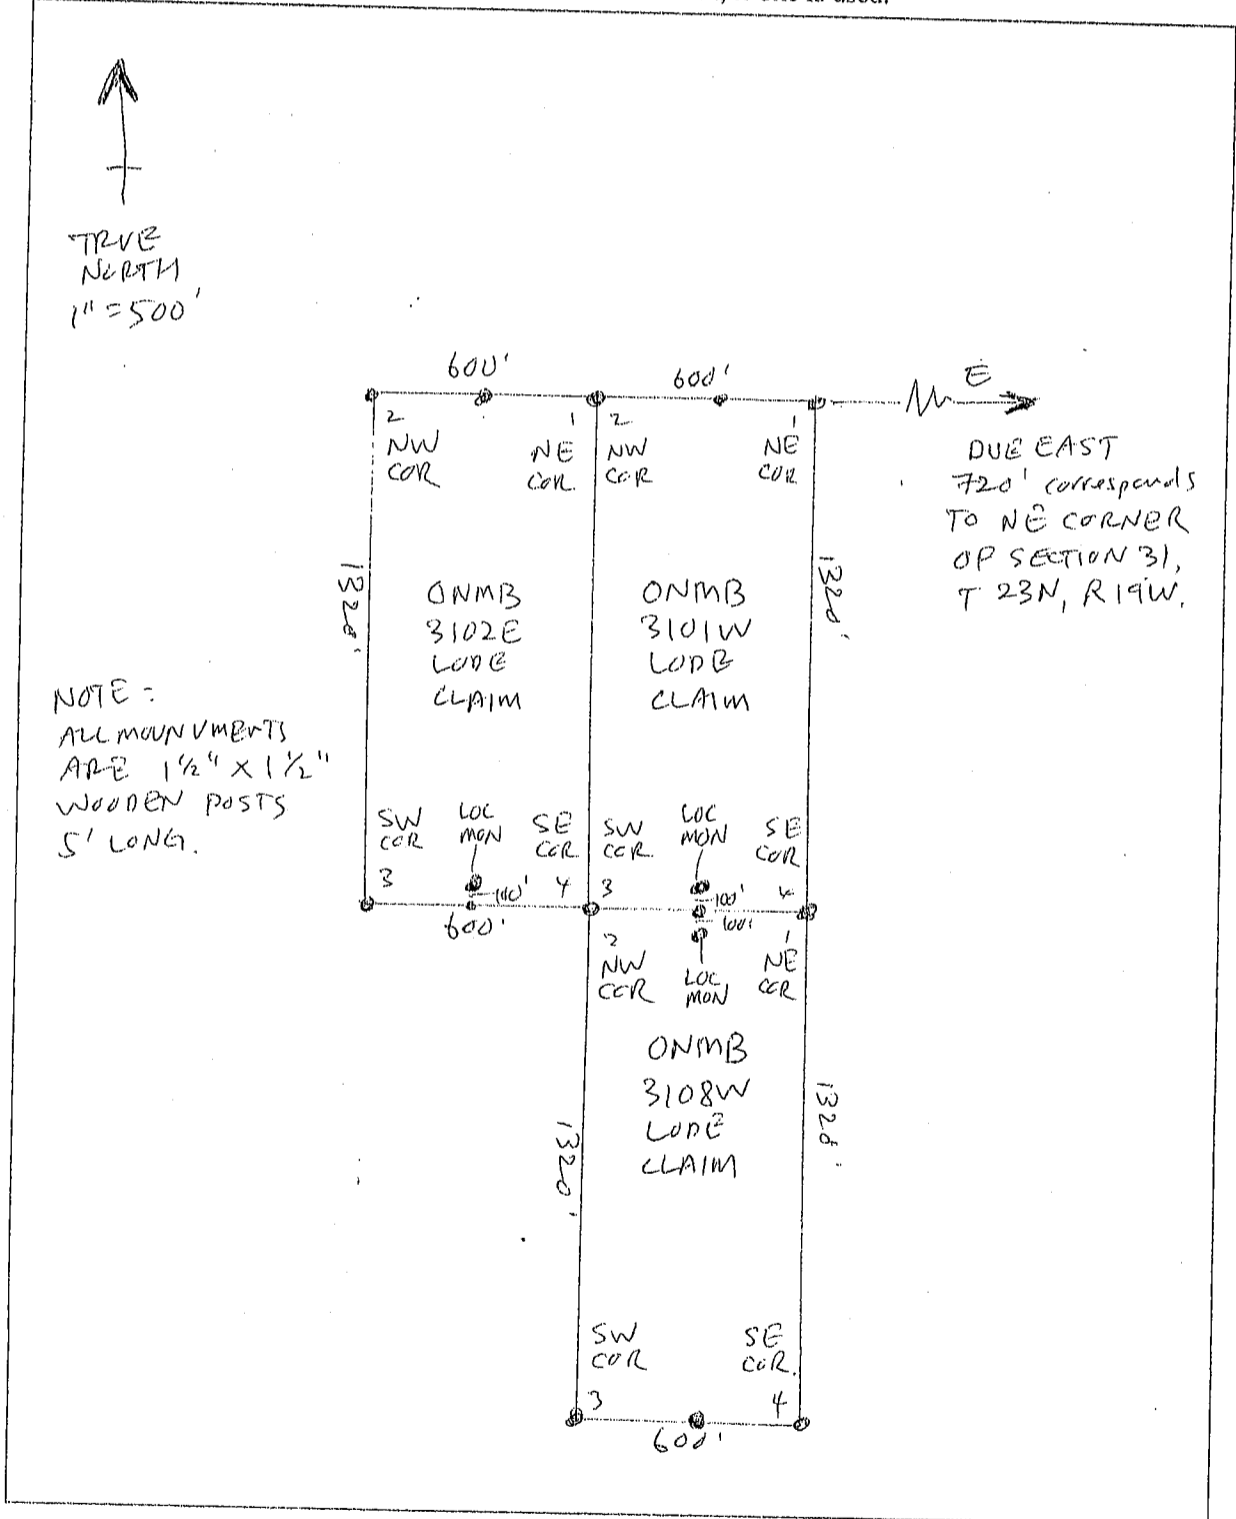 TRUE
NORTH
1" = 500'
600'
600'
E
2
NW
COR
1
NE
COR.
2
NW
COR
1
NE
COR
DUE EAST
720' corresponds
TO NE CORNER
OF SECTION 31,
T 23N, R19W.
1320'
ONMB
3102E
LODE
CLAIM
ONMB
3101W
LODE
CLAIM
1320'
NOTE:
ALL MOUNUMENTS
ARE 1 1/2" X 1 1/2"
WOODEN POSTS
5' LONG.
SW
COR
3
LOC
MON
100'
SE
COR.
4
SW
COR.
3
LOC
MON
100'
SE
COR
4
600'
100'
2
NW
COR
LOC
MON
1
NE
COR
ONMB
3108W
LODE
CLAIM
1320'
1320'
SW
COR
3
SE
COR.
4
600'